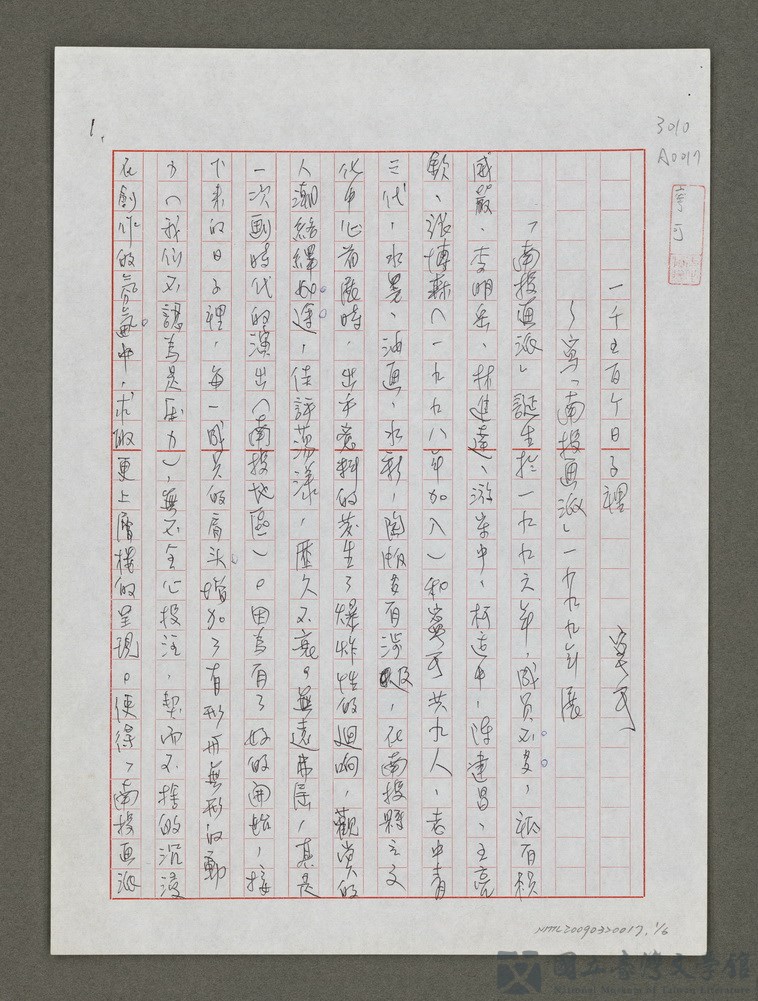 1.
3010
A0017
寧可
一千五百个日子裡
寧可
～寫「南投画派」一九九九年展
「南投画派」誕生於一九九六年,成員不多,祇有賴
威嚴、李明岳、林進達、游栄中、柯适中、陳建昌、王亮
欽、張博森(一九九八年加入)和寧可共九人,老中青
三代,水墨、油画、水彩,陶版多有涉及,在南投縣立文
化中心首展時,出乎意料的發生了爆炸性的迴响,觀賞的
人潮絡繹如䢖,佳評荡漾,歷久不衰。無遠弗屆,真是
一次劃時代的演出(南投地區)。因為有了好的開始,接
下來的日子裡,每一成員的肩头增加了有形冊無形的動
力(我们不認為是压力),無不全心投注,契而不捨的沉浸
在創作的氛氳中,求做更上層樓的呈現。使得,南投画派
NMTL20090320017, 1/6
国立台湾文学館
National Museum of Taiwan Literature